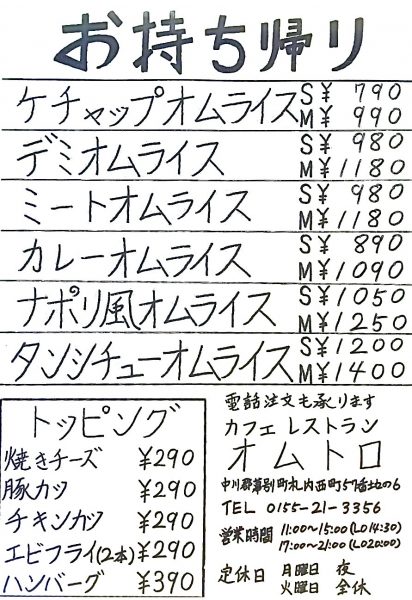 お持ち帰り
ケチャップオムライス S¥790
M¥990
デミオムライス S¥980
M¥1180
ミートオムライス S¥980
M¥1180
カレーオムライス S¥890
M¥1090
ナポリ風オムライス S¥1050
M¥1250
タンシチューオムライス S¥1200
M¥1400
トッピング
焼きチーズ ¥290
豚カツ ¥290
チキンカツ ¥290
エビフライ(2本) ¥290
ハンバーグ ¥390
電話注文も承ります
カフェレストラン
オムトロ
中川郡幕別町札内西町57番地の6
TEL 0155-21-3356
営業時間 11:00~15:00(LO14:30)
17:00~21:00(LO20:00)
定休日 月曜日 夜
火曜日 全休